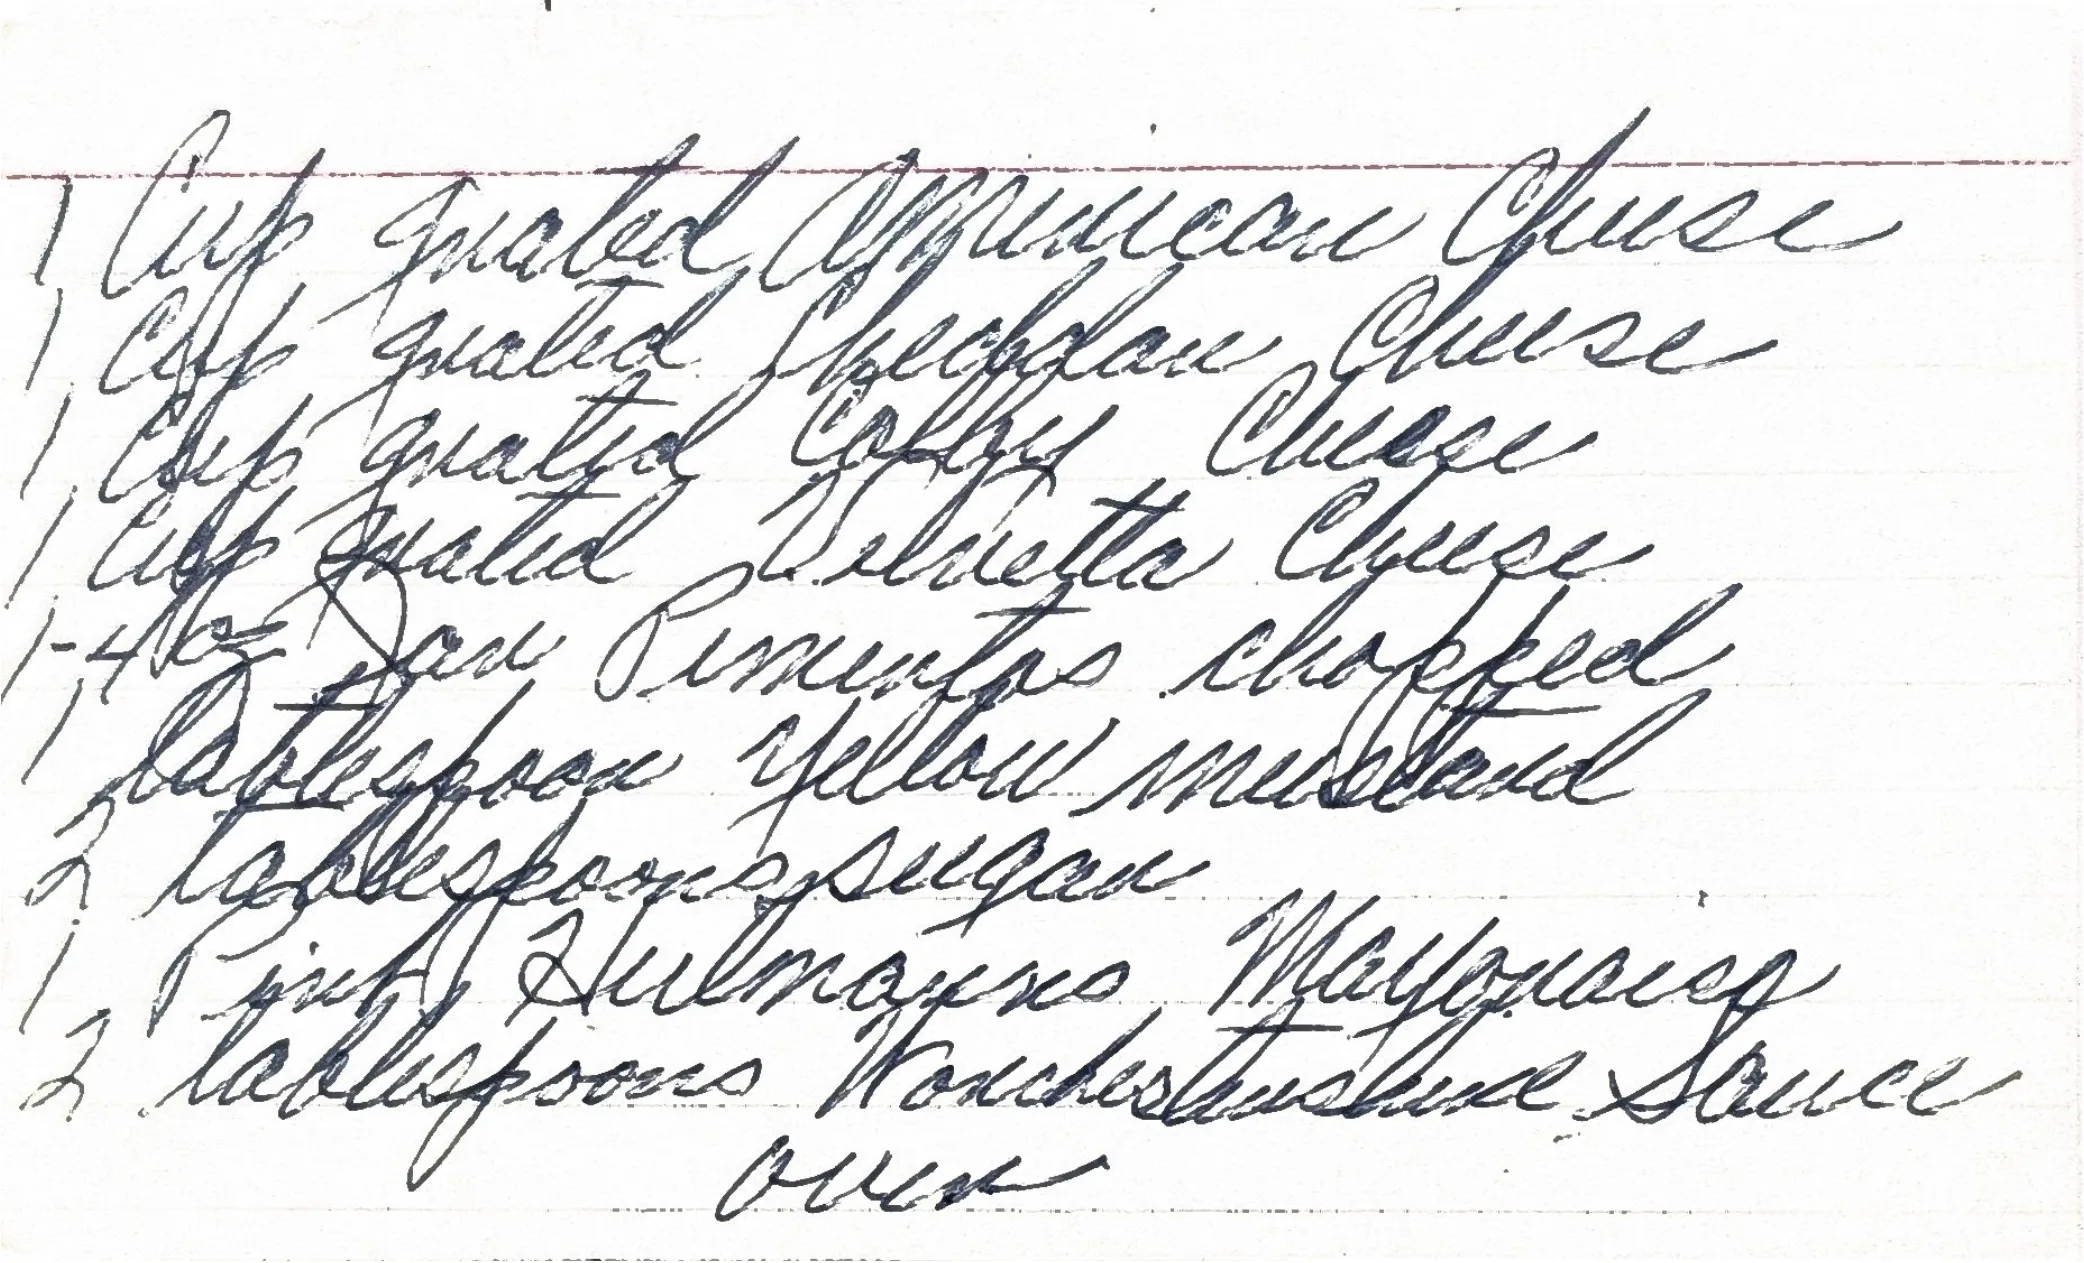 1 Cup grated American Cheese
1 Cup grated Cheddar Cheese
1 Cup grated Colby Cheese
1 Cup grated Velvetta Cheese
1-4 oz Jar Pimentos chopped
1 tablespoon yellow mustard
2 tablespoons sugar
1 Pint Hellmanns Mayonaise
2 tablespoons Worchestershire Sauce
over